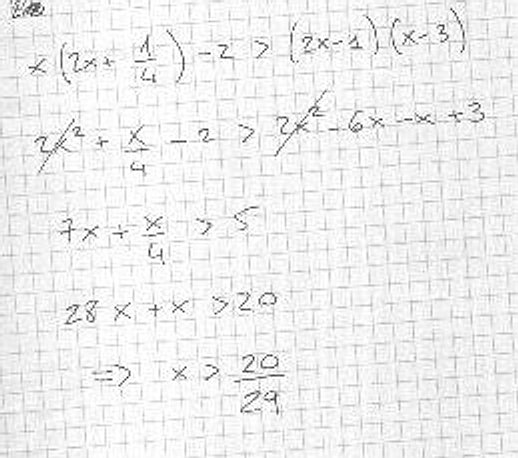 x(2x + 1/4) - 2 > (2x - 1)(x - 3)
2x² + x/4 - 2 > 2x² - 6x - x + 3
7x + x/4 > 5
28x + x > 20
=> x > 20/29